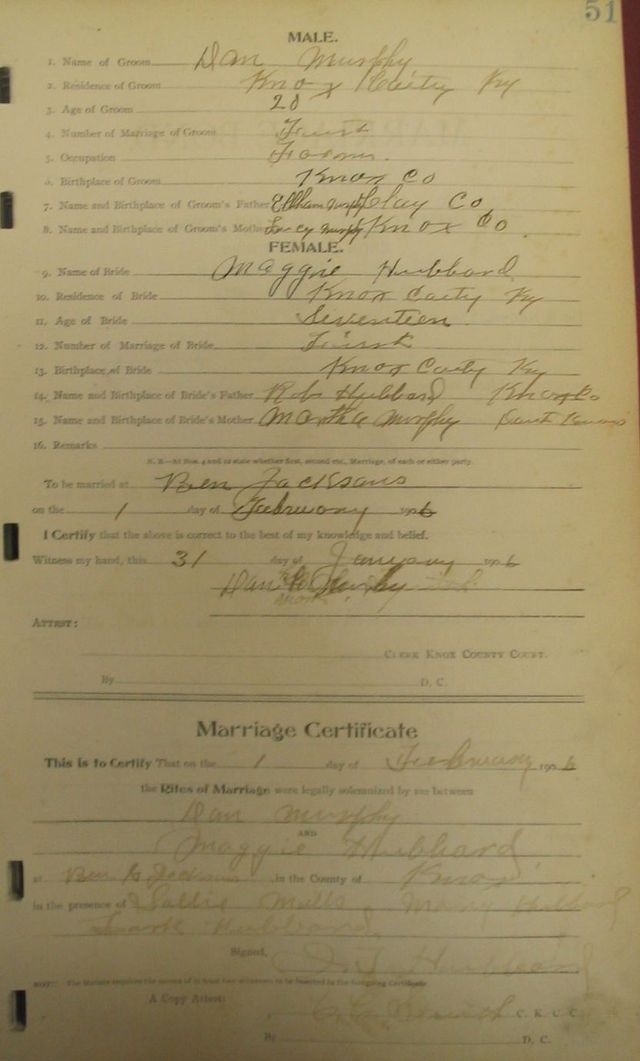 51
MALE.
1. Name of Groom Dan Murphy
2. Residence of Groom Knox Caity Ky
3. Age of Groom 20
4. Number of Marriage of Groom First
5. Occupation Farmer
6. Birthplace of Groom Knox Co
7. Name and Birthplace of Groom's Father Murphy Clay Co
8. Name and Birthplace of Groom's Mother Lucy Murphy Knox Co.
FEMALE.
9. Name of Bride Maggie Hubbard
10. Residence of Bride Knox Caity Ky
11. Age of Bride Seventeen
12. Number of Marriage of Bride First
13. Birthplace of Bride Knox Caity Ky
14. Name and Birthplace of Bride's Father Rob Hubbard Knox Co
15. Name and Birthplace of Bride's Mother Martha Murphy
16. Remarks
N. B.—At Nos. 4 and 12 state whether first, second etc., Marriage, of each or either party.
To be married at Ben Jacksons
on the 1 day of February 1906
I Certify that the above is correct to the best of my knowledge and belief.
Witness my hand, this 31 day of January 1906
Dan Murphy
ATTEST:
CLERK KNOX COUNTY COURT.
By D. C.
Marriage Certificate
This is to Certify That on the 1 day of February 1906
the Rites of Marriage were legally solemnized by me between
Dan Murphy
AND
Maggie Hubbard
at Ben Jacksons in the County of Knox
in the presence of Sallie Mills, Mary Hubbard
Hubbard
Signed,
NOTE: The Statute requires the names of at least two witnesses to be inserted in the foregoing Certificate
A Copy Attest: C. K. C. C.
By D. C.